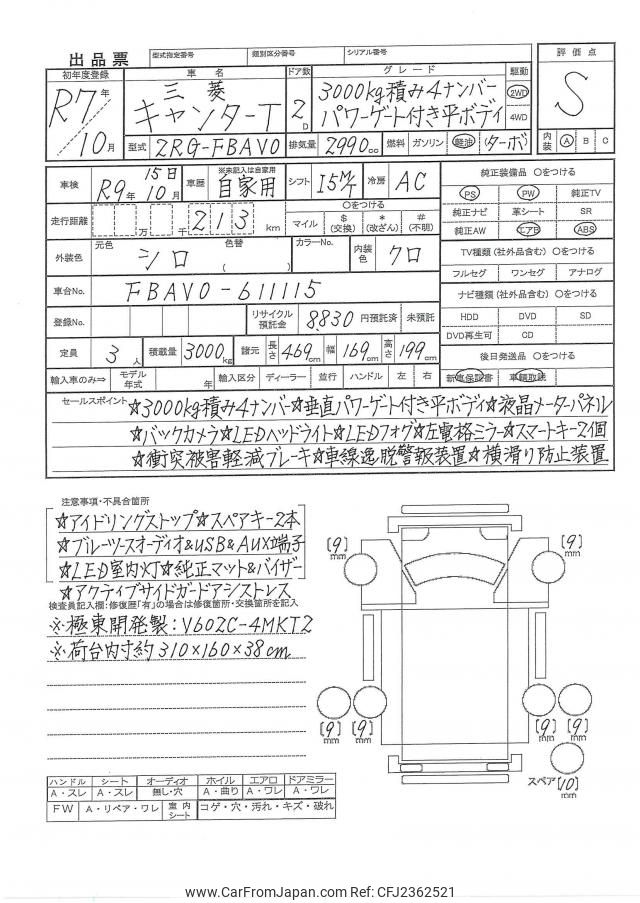 出品票 型式指定番号 類別区分番号 シリアル番号
初年度登録 車名 ドア数 グレード 駆動 評価点
R7年 三菱 3000kg積み4ナンバー 2WD S
10月 キャンターT 2D パワーゲート付き平ボディ 4WD
型式 2RG-FBAV0 排気量 2990cc 燃料 ガソリン 軽油 (ターボ) 内装 A B C
車検 R9年 15日 10月 車歴 ※未記入は自家用 自家用 シフト I5M/T 冷房 AC 純正装備品 ○をつける
PS PW 純正TV
走行距離 万 千 213 km ○をつける 純正ナビ 革シート SR
マイル $(交換) *(改ざん) #(不明) 純正AW エアB ABS
外装色 元色 シロ 色替 ( ) カラーNo. 内装色 クロ TV種類(社外品含む) ○をつける
フルセグ ワンセグ アナログ
車台No. FBAV0-611115 ナビ種類(社外品含む) ○をつける
登録No. リサイクル預託金 8830 円預託済 未預託 HDD DVD SD
DVD再生可 CD
定員 3人 積載量 3000kg 諸元 長さ 469cm 幅 169cm 高さ 199cm 後日発送品 ○をつける
輸入車のみ⇒ モデル年式 年 輸入区分 ディーラー 並行 ハンドル 左 右 新車保証書 車輌取説
セールスポイント ☆3000kg積み4ナンバー☆垂直パワーゲート付き平ボディ☆液晶メーターパネル
☆バックカメラ☆LEDヘッドライト☆LEDフォグ☆左電格ミラー☆スマートキー2個
☆衝突被害軽減ブレーキ☆車線逸脱警報装置☆横滑り防止装置
注意事項・不具合箇所
☆アイドリングストップ☆スペアキー2本
☆ブルーツースオーディオ&USB&AUX端子
☆LED室内灯☆純正マット&バイザー
☆アクティブサイドガードアシストレス
検査員記入欄:修復歴「有」の場合は修復箇所・交換箇所を記入
※極東開発製:V602C-4MKT2
※荷台内寸約310×160×38cm
[9]mm [9]mm
[9]mm [9]mm [9]mm [9]mm
スペア [10]mm
ハンドル シート オーディオ ホイル エアロ ドアミラー
A・スレ A・スレ 無し・穴 A・曲り A・ワレ A・ワレ
FW A・リペア・ワレ 室内シート コゲ・穴・汚れ・キズ・破れ
www.CarFromJapan.com Ref: CFJ2362521